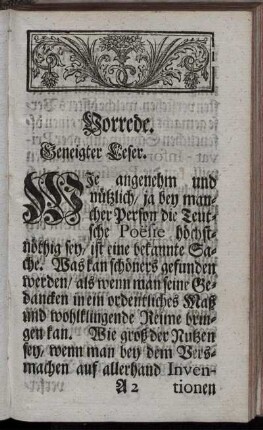 Vorrede.
Geneigter Leser.
WIe angenehm und
nützlich/ ja bey man-
cher Person die Teut-
sche Poësie höchst-
nöthig sey/ ist eine bekannte Sa-
che. Was kan schöners gefunden
werden/ als wenn man seine Ge-
dancken in ein ordentliches Maß
und wohlklingende Reime brin-
gen kan. Wie groß der Nutzen
sey/ wenn man bey dem Vers-
machen auf allerhand Inven-
A 2 tionen